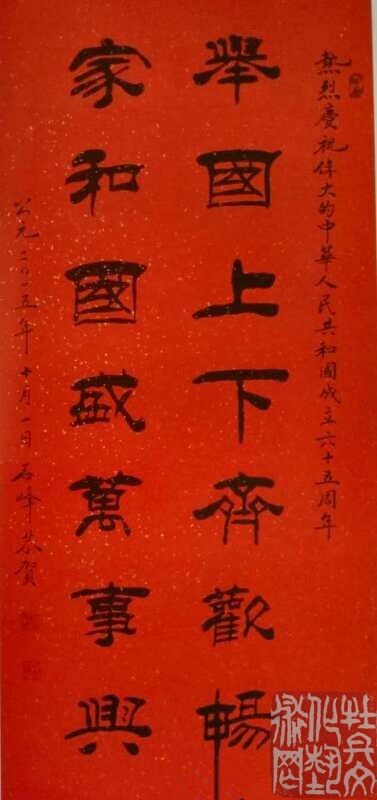 熱烈慶祝偉大的中華人民共和國成立六十五周年
舉國上下齊歡暢
家和國盛萬事興
公元二〇一五年十月一日石峰恭賀